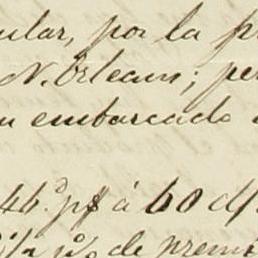 ular, por la pr
N. Orleans; per
embarcado
46.º p$ á 60 d/
p%o de premi